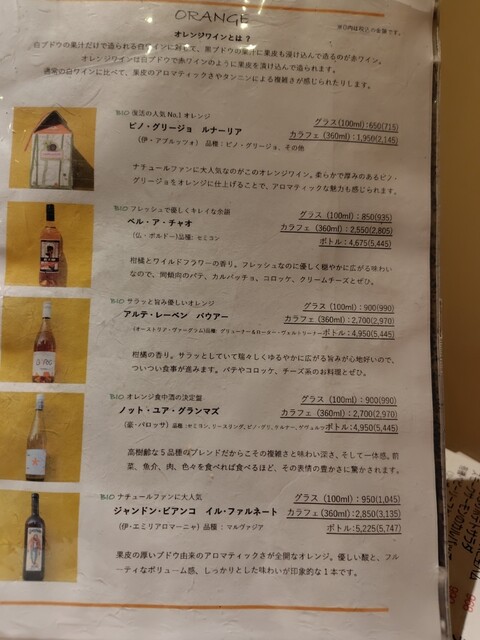 ORANGE
※()内は税込の金額です。
オレンジワインとは？
白ブドウの果汁だけで造られる白ワインに対して、黒ブドウの果汁に果皮も漬け込んで造るのが赤ワイン。
オレンジワインは白ブドウで赤ワインのように果皮を漬け込んで造られます。
通常の白ワインに比べて、果皮のアロマティックさやタンニンによる複雑さが感じられたりします。
BIO 復活の人気No.1 オレンジ
ピノ・グリージョ ルナーリア
(伊・アブルッツォ) 品種：ピノ・グリージョ、その他
グラス(100ml)：650(715)
カラフェ (360ml)：1,950(2,145)
ナチュールファンに大人気なのがこのオレンジワイン。柔らかで厚みのあるピノ・
グリージョをオレンジに仕上げることで、アロマティックな魅力も感じられます。
BIO フレッシュで優しくキレイな余韻
ベル・ア・チャオ
(仏・ボルドー)品種：セミヨン
グラス (100ml)：850(935)
カラフェ (360ml)：2,550(2,805)
ボトル：4,675(5,445)
柑橘とワイルドフラワーの香り。フレッシュなのに優しく穏やかに広がる味わい
なので、同傾向のパテ、カルパッチョ、コロッケ、クリームチーズとぜひ。
BIO サラッと旨み優しいオレンジ
アルテ・レーベン バウアー
(オーストリア・ヴァーグラム)品種：グリューナー&ローター・ヴェルトリーナー
グラス (100ml)：900(990)
カラフェ (360ml)：2,700(2,970)
ボトル：4,950(5,445)
柑橘の香り。サラッとしていて瑞々しくゆるやかに広がる旨みが心地好いので、
ついつい食事が進みます。パテやコロッケ、チーズ系のお料理とぜひ。
BIO オレンジ食中酒の決定盤
ノット・ユア・グランマズ
(豪・バロッサ) 品種：セミヨン、リースリング、ピノ・グリ、ケルナー、ゲヴュルツ
グラス (100ml)：900(990)
カラフェ (360ml)：2,700(2,970)
ボトル：4,950(5,445)
高樹齢な5品種のブレンドだからこその複雑さと味わい深さ、そして一体感。前
菜、魚介、肉、色々を食べれば食べるほど、その表情の豊かさに驚かされます。
BIO ナチュールファンに大人気
ジャンドン・ビアンコ イル・ファルネート
(伊・エミリアロマーニャ) 品種：マルヴァジア
グラス (100ml)：950(1,045)
カラフェ(360ml)：2,850(3,135)
ボトル：5,225(5,747)
果皮の厚いブドウ由来のアロマティックさが全開なオレンジ。優しい酸と、フル
ーティなボリューム感、しっかりとした味わいが印象的な1本です。